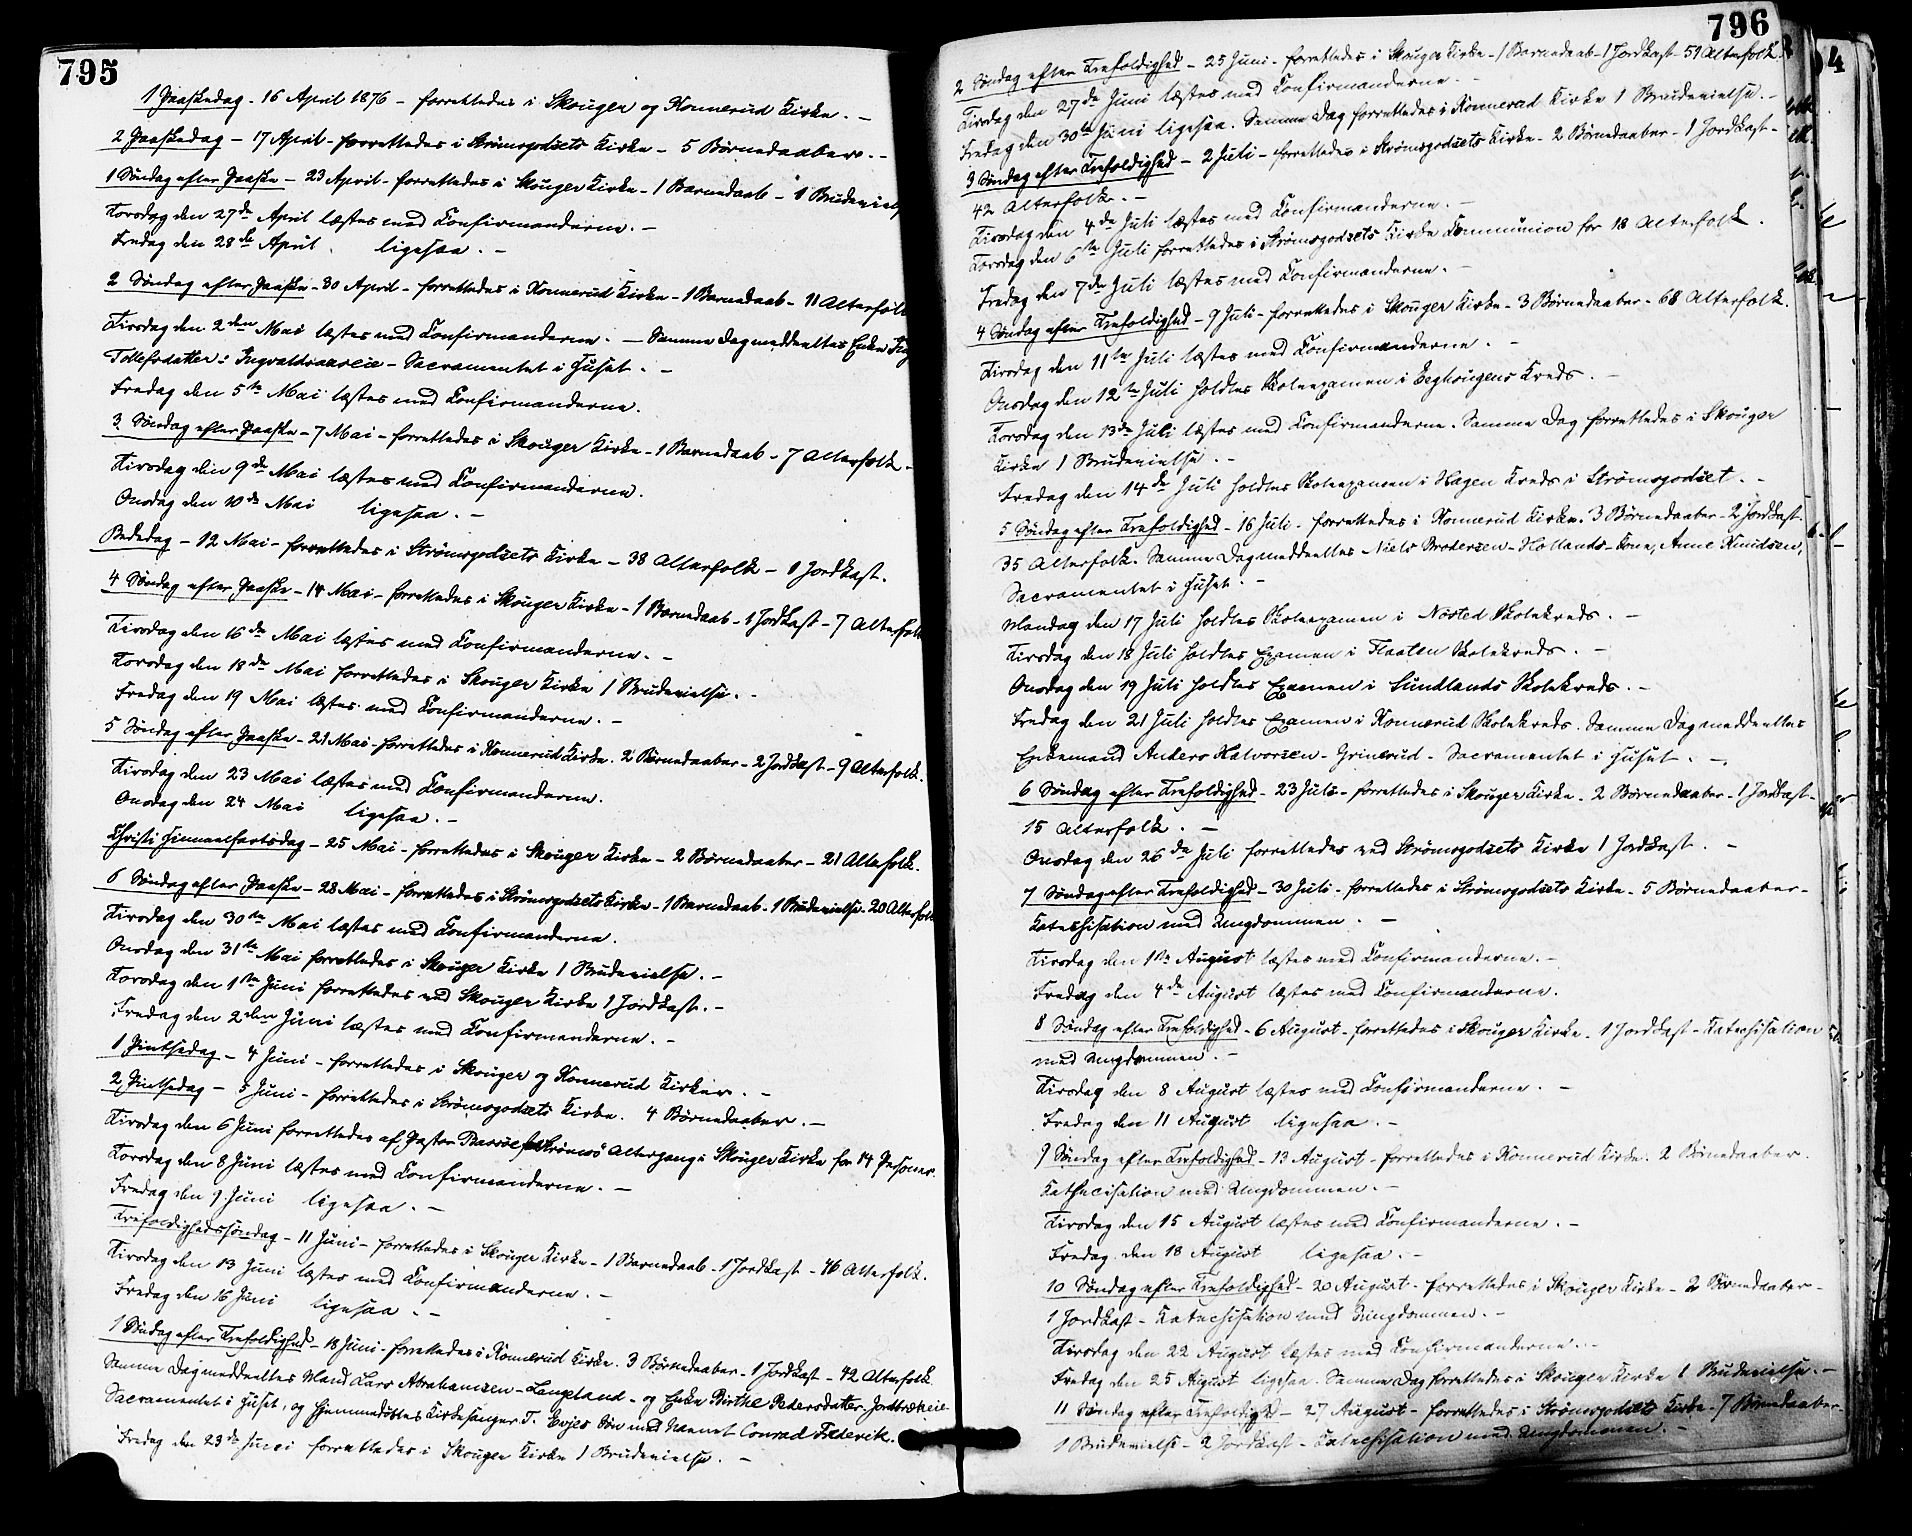 795
1 Paaskedag - 16 April 1876 - forrettedes i Skouger og Konnerud Kirke. -
2 Paaskedag - 17 April - forrettedes i Strømsgodsets Kirke - 5 Børnedaaber. -
1 Søndag efter Paaske - 23 April - forrettedes i Skouger Kirke - 1 Barnedaab - 1 Brudeviels
Torsdag den 27de April læstes med Confirmanderne. -
Fredag den 28de April. ligesaa. -
2 Søndag efter Paaske - 30 April - forrettedes i Konnerud Kirke - 1 Barnedaab - 11 Alterfolk
Tirsdag den 2den Mai læstes med Confirmanderne. - Samme Dag meddeeltes Enke
Tollefsdatter: Ingvaldsaaseie - Sacramentet i Huset. -
Fredag den 5te Mai læstes med Confirmanderne.
3. Søndag efter Paaske - 7 Mai - forrettedes i Skouger Kirke - 1 Barnedaab - 7 Alterfolk -
Tirsdag den 9de Mai læstes med Confirmanderne.
Onsdag den 10de Mai ligesaa. -
Bededag - 12 Mai - forrettedes i Strømsgodsets Kirke - 38 Alterfolk - 1 Jordkast.
4 Søndag efter Paaske - 14 Mai - forrettedes i Skouger Kirke - 1 Barnedaab - 1 Jordkast - 7 Alterfolk
Tirsdag den 16de Mai læstes med Confirmanderne. -
Torsdag den 18de Mai forrettedes i Skouger Kirke 1 Brudevielse. -
Fredag den 19 Mai læstes med Confirmanderne. -
5 Søndag efter Paaske - 21 Mai - forrettedes i Konnerud Kirke. 2 Børnedaaber - 2 Jordkast - 9 Alterfolk.
Tirsdag den 23 Mai læstes med Confirmanderne.
Onsdag den 24 Mai ligesaa. -
Christi Himmelfartsdag - 25 Mai - forrettedes i Skouger Kirke - 2 Børnedaaber - 21 Alterfolk.
6 Søndag efter Paaske - 28 Mai - forrettedes i Strømsgodsets Kirke - 1 Barnedaab - 1 Brudevielse - 20 Alterfolk
Tirsdag den 30te Mai læstes med Confirmanderne.
Onsdag den 31te Mai forrettedes i Skouger Kirke 1 Brudevielse. -
Torsdag den 1ste Juni forrettedes ved Skouger Kirke 1 Jordkast. -
Fredag den 2den Juni læstes med Confirmanderne. -
1 Pintsedag - 4 Juni - forrettedes i Skouger og Konnerud Kirker. -
2 Pintsedag - 5 Juni - forrettedes i Strømsgodsets Kirke. 4 Børnedaaber. -
Tirsdag den 6 Juni forrettedes af Pastor Strømsø Altergang i Skouger Kirke for 14 Personer.
Torsdag den 8 Juni læstes med Confirmanderne. -
Fredag den 9. Juni ligesaa. -
Trefoldighedssøndag - 11 Juni - forrettedes i Skouger Kirke - 1 Barnedaab - 1 Jordkast - 46 Alterfolk.
Tirsdag den 13 Juni læstes med Confirmanderne. -
Fredag den 16 Juni ligesaa. -
1 Søndag efter Trefoldighed - 18 Juni - forrettedes i Konnerud Kirke. 3 Børnedaaber - 1 Jordkast - 42 Alterfolk
Samme Dag meddeeltes Mand Lars Abrahamsen - Langeland - og Enke Birthe Pedersdatter - Jordbrækeie
Sacramentet i Huset, og hjemmedøbtes Kirkesanger T. Evjes Søn med Navnet Conrad Frederik.
Fredag den 23de Juni forrettedes i Skouger Kirke 1 Brudevielse. -
796
2 Søndag efter Trefoldighed - 25 Juni - forrettedes i Skouger Kirke - 1 Barnedaab - 1 Jordkast - 59 Alterfolk.
Tirsdag den 27de Juni læstes med Confirmanderne. -
Fredag den 30te Juni ligesaa. Samme Dag forrettedes i Konnerud Kirke 1 Brudevielse. -
3 Søndag efter Trefoldighed - 2 Juli - forrettedes i Strømsgodsets Kirke - 2 Børnedaaber - 1 Jordkast -
42 Alterfolk. -
Tirsdag den 4de Juli læstes med Confirmanderne. -
Torsdag den 6te Juli forrettedes i Strømsgodsets Kirke Communion for 18 Alterfolk.
Fredag den 7de Juli læstes med Confirmanderne. -
4 Søndag efter Trefoldighed - 9 Juli - forrettedes i Skouger Kirke - 3 Børnedaaber - 68 Alterfolk.
Tirsdag den 11te Juli læstes med Confirmanderne. -
Onsdag den 12te Juli holdtes Skoleexamen i Eeghougens Kreds. -
Torsdag den 13de Juli læstes med Confirmanderne. Samme Dag forrettedes i Skouger
Kirke 1 Brudevielse. -
Fredag den 14de Juli holdtes Skoleexamen i Hagen Kreds i Strømsgodset. -
5 Søndag efter Trefoldighed - 16 Juli - forrettedes i Konnerud Kirke. 3 Børnedaaber - 2 Jordkast -
35 Alterfolk. Samme Dag meddeeltes Niels Brodersen - Hollands - Kone, Anne Knudsen,
Sacramentet i Huset. -
Mandag den 17 Juli holdtes Skoleexamen i Nøsted Skolekreds. -
Tirsdag den 18 Juli holdtes Examen i Flaaten Skolekreds. -
Onsdag den 19 Juli holdtes Examen i Sundlands Skolekreds. -
Fredag den 21 Juli holdtes Examen i Konnerud Skolekreds. Samme Dag meddeeltes
Enkemand Anders Halvorsen - Grinerud - Sacramentet i Huset. -
6 Søndag efter Trefoldighed - 23 Juli - forrettedes i Skouger Kirke - 2 Børnedaaber - 1 Jordkast -
15 Alterfolk. -
Onsdag den 26de Juli forrettedes ved Strømsgodsets Kirke 1 Jordkast. -
7 Søndag efter Trefoldighed - 30 Juli - forrettedes i Strømsgodsets Kirke - 5 Børnedaaber -
Katechisation med Ungdommen. -
Tirsdag den 1ste August læstes med Confirmanderne. -
Fredag den 4de August læstes med Confirmanderne.
8 Søndag efter Trefoldighed - 6 August - forrettedes i Skouger Kirke. 1 Jordkast - Katechisation
med Ungdommen. -
Tirsdag den 8 August læstes med Confirmanderne. -
Fredag den 11 August ligesaa. -
9 Søndag efter Trefoldighed - 13 August - forrettedes i Konnerud Kirke. 2 Børnedaaber.
Kathecisation med Ungdommen. -
Tirsdag den 15 August læstes med Confirmanderne. -
Fredag den 18 August ligesaa. -
10 Søndag efter Trefoldighed - 20 August - forrettedes i Skouger Kirke - 2 Børnedaaber -
1 Jordkast - Katechisation med Ungdommen. -
Tirsdag den 22 August læstes med Confirmanderne. -
Fredag den 25 August ligesaa. Samme Dag forrettedes i Skouger Kirke 1 Brudevielse. -
11 Søndag efter Trefoldighed - 27 August - forrettedes i Strømsgodsets Kirke - 7 Børnedaaber
1 Brudevielse - 2 Jordkast - Katechisation med Ungdommen. -
4